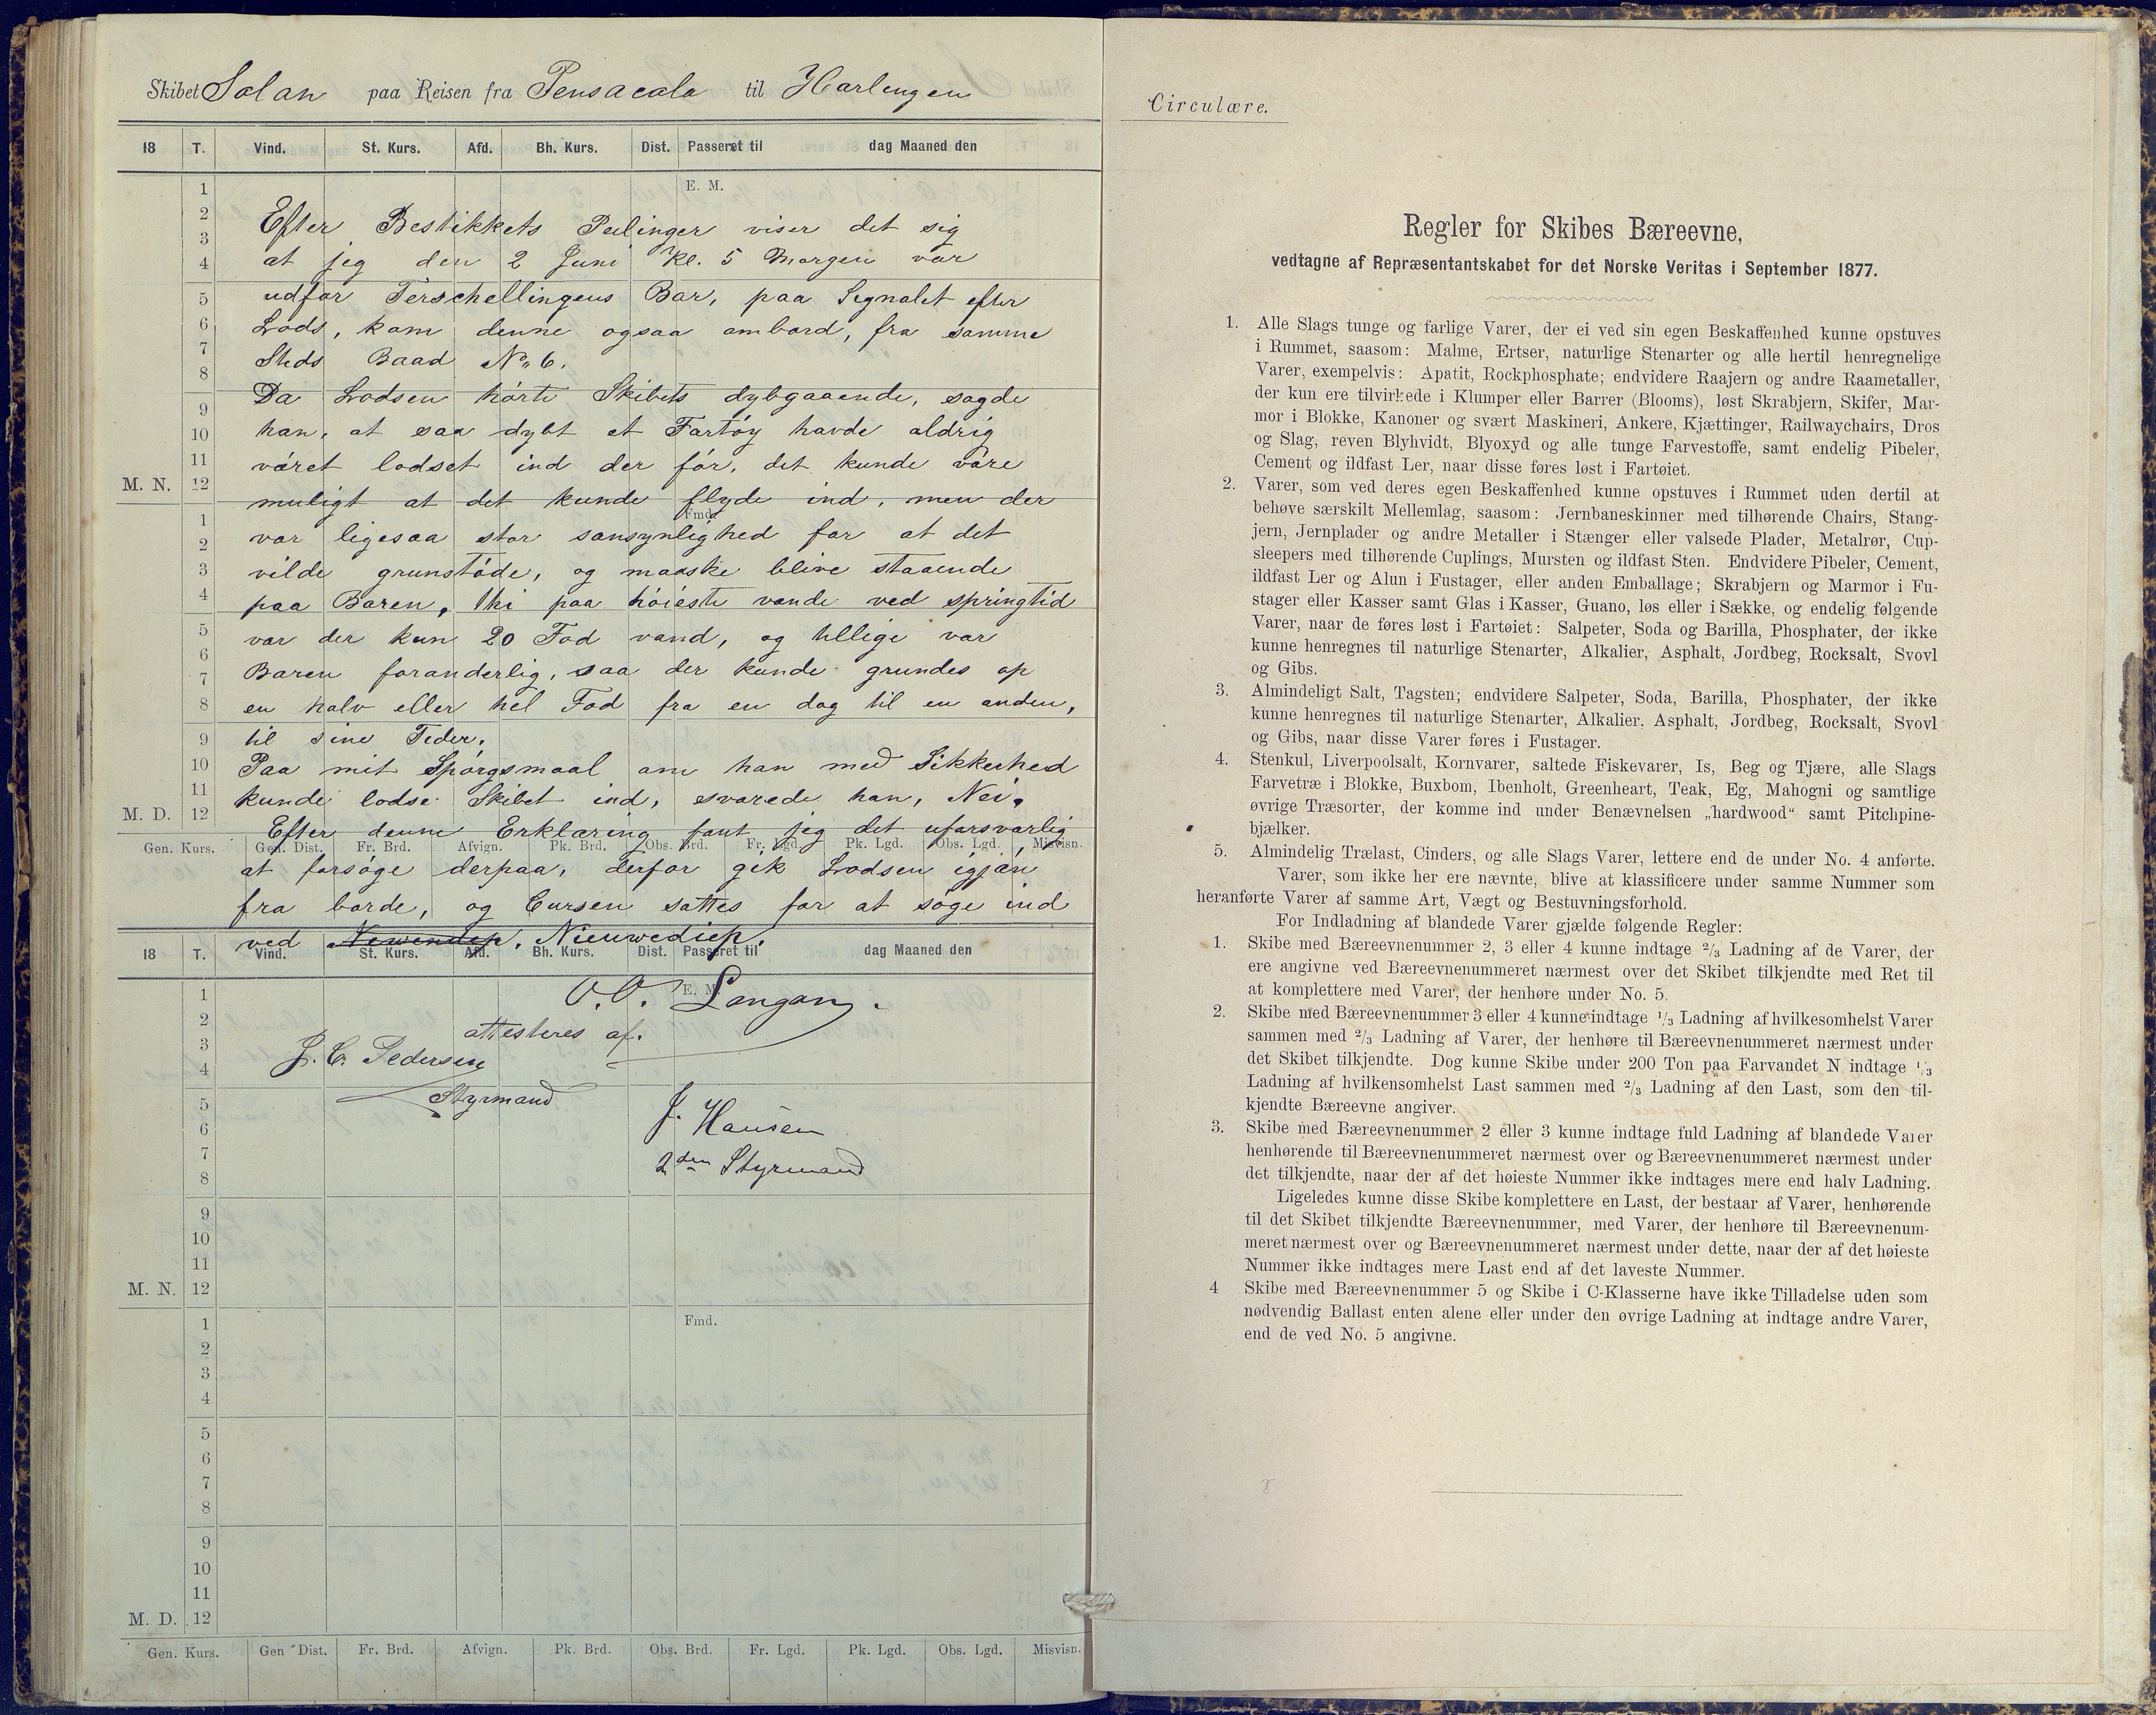 Skibet Solan paa Reisen fra Pensacola til Harlengen
18 T. Vind. St. Kurs. Afd. Bh. Kurs. Dist. Passeret til dag Maaned den
E. M.
1
2
3
4
5
6
7
8
9
10
11
M. N. 12
Fmd.
1
2
3
4
5
6
7
8
9
10
11
M. D. 12
Efter Bestikkets Peilinger viser det sig
at jeg den 2 Juni Kl. 5 Morgen var
udfor Terschellingens Bar, paa Signalet efter
Lods, kom denne ogsaa ombord, fra samme
Steds Baad No 6.
Da Lodsen hörte Skibets dybgaaende, sagde
han, at saa dybt et Fartöy havde aldrig
väret lodset ind der för, det kunde väre
muligt at det kunde flyde ind, men der
var ligesaa stor sansynlighed for at det
vilde grunstöde, og maaske blive staaende
paa Baren, thi paa höieste vande ved springtid
var der kun 20 Fod vand, og tillige var
Baren foranderlig, saa der kunde grundes op
en halv eller hel Fod fra en dag til en anden,
til sine Tider.
Paa mit Spörgsmaal om han med Sikkerhed
kunde lodse Skibet ind, svarede han, Nei.
Efter denne Erklæring fant jeg det uforsvarlig
Gen. Kurs. Gen. Dist. Fr. Brd. Afvign. Pk. Brd. Obs. Brd. Fr. Lgd. Pk. Lgd. Obs. Lgd. Misvisn.
at forsöge derpaa, derfor gik Lodsen igjän
fra borde, og Cursen sattes for at söge ind
ved Newendep. Nieuwediep.
18 T. Vind. St. Kurs. Afd. Bh. Kurs. Dist. Passeret til dag Maaned den
E. M.
O. O. Langan.
attesteres af.
J. C. Pedersen
Styrmand
J. Hansen
2den Styrmand
1
2
3
4
5
6
7
8
9
10
11
M. N. 12
Fmd.
1
2
3
4
5
6
7
8
9
10
11
M. D. 12
Gen. Kurs. Gen Dist. Fr. Brd. Afvign. Pk. Brd. Obs. Brd. Fr. Lgd. Pk. Lgd. Obs. Lgd. Misvisn.
Circulære.
Regler for Skibes Bæreevne,
vedtagne af Repræsentantskabet for det Norske Veritas i September 1877.
1. Alle Slags tunge og farlige Varer, der ei ved sin egen Beskaffenhed kunne opstuves
i Rummet, saasom: Malme, Ertser, naturlige Stenarter og alle hertil henregnelige
Varer, exempelvis: Apatit, Rockphosphate; endvidere Raajern og andre Raametaller,
der kun ere tilvirkede i Klumper eller Barrer (Blooms), løst Skrabjern, Skifer, Mar-
mor i Blokke, Kanoner og svært Maskineri, Ankere, Kjættinger, Railwaychairs, Dros
og Slag, reven Blyhvidt, Blyoxyd og alle tunge Farvestoffe, samt endelig Pibeler,
Cement og ildfast Ler, naar disse føres løst i Fartøiet.
2. Varer, som ved deres egen Beskaffenhed kunne opstuves i Rummet uden dertil at
behøve særskilt Mellemlag, saasom: Jernbaneskinner med tilhørende Chairs, Stang-
jern, Jernplader og andre Metaller i Stænger eller valsede Plader, Metalrør, Cup-
sleepers med tilhørende Cuplings, Mursten og ildfast Sten. Endvidere Pibeler, Cement,
ildfast Ler og Alun i Fustager, eller anden Emballage; Skrabjern og Marmor i Fu-
stager eller Kasser samt Glas i Kasser, Guano, løs eller i Sække, og endelig følgende
Varer, naar de føres løst i Fartøiet: Salpeter, Soda og Barilla, Phosphater, der ikke
kunne henregnes til naturlige Stenarter, Alkalier, Asphalt, Jordbeg, Rocksalt, Svovl
og Gibs.
3. Almindeligt Salt, Tagsten; endvidere Salpeter, Soda, Barilla, Phosphater, der ikke
kunne henregnes til naturlige Stenarter, Alkalier, Asphalt, Jordbeg, Rocksalt, Svovl
og Gibs, naar disse Varer føres i Fustager.
4. Stenkul, Liverpoolsalt, Kornvarer, saltede Fiskevarer, Is, Beg og Tjære, alle Slags
Farvetræ i Blokke, Buxbom, Ibenholt, Greenheart, Teak, Eg, Mahogni og samtlige
øvrige Træsorter, der komme ind under Benævnelsen „hardwood“ samt Pitchpine-
bjælker.
5. Almindelig Trælast, Cinders, og alle Slags Varer, lettere end de under No. 4 anførte.
Varer, som ikke her ere nævnte, blive at klassificere under samme Nummer som
heranførte Varer af samme Art, Vægt og Bestuvningsforhold.
For Indladning af blandede Varer gjælde følgende Regler:
1. Skibe med Bæreevnenummer 2, 3 eller 4 kunne indtage 2/3 Ladning af de Varer, der
ere angivne ved Bæreevnenummeret nærmest over det Skibet tilkjendte med Ret til
at komplettere med Varer, der henhøre under No. 5.
2. Skibe med Bæreevnenummer 3 eller 4 kunne indtage 1/3 Ladning af hvilkesomhelst Varer
sammen med 2/3 Ladning af Varer, der henhøre til Bæreevnenummeret nærmest under
det Skibet tilkjendte. Dog kunne Skibe under 200 Ton paa Farvandet N indtage 1/3
Ladning af hvilkensomhelst Last sammen med 2/3 Ladning af den Last, som den til-
kjendte Bæreevne angiver.
3. Skibe med Bæreevnenummer 2 eller 3 kunne indtage fuld Ladning af blandede Varer
henhørende til Bæreevnenummeret nærmest over og Bæreevnenummeret nærmest under
det tilkjendte, naar der af det høieste Nummer ikke indtages mere end halv Ladning.
Ligeledes kunne disse Skibe komplettere en Last, der bestaar af Varer, henhørende
til det Skibet tilkjendte Bæreevnenummer, med Varer, der henhøre til Bæreevnenum-
meret nærmest over og Bæreevnenummeret nærmest under dette, naar der af det høieste
Nummer ikke indtages mere Last end af det laveste Nummer.
4 Skibe med Bæreevnenummer 5 og Skibe i C-Klasserne have ikke Tilladelse uden som
nødvendig Ballast enten alene eller under den øvrige Ladning at indtage andre Varer,
end de ved No. 5 angivne.